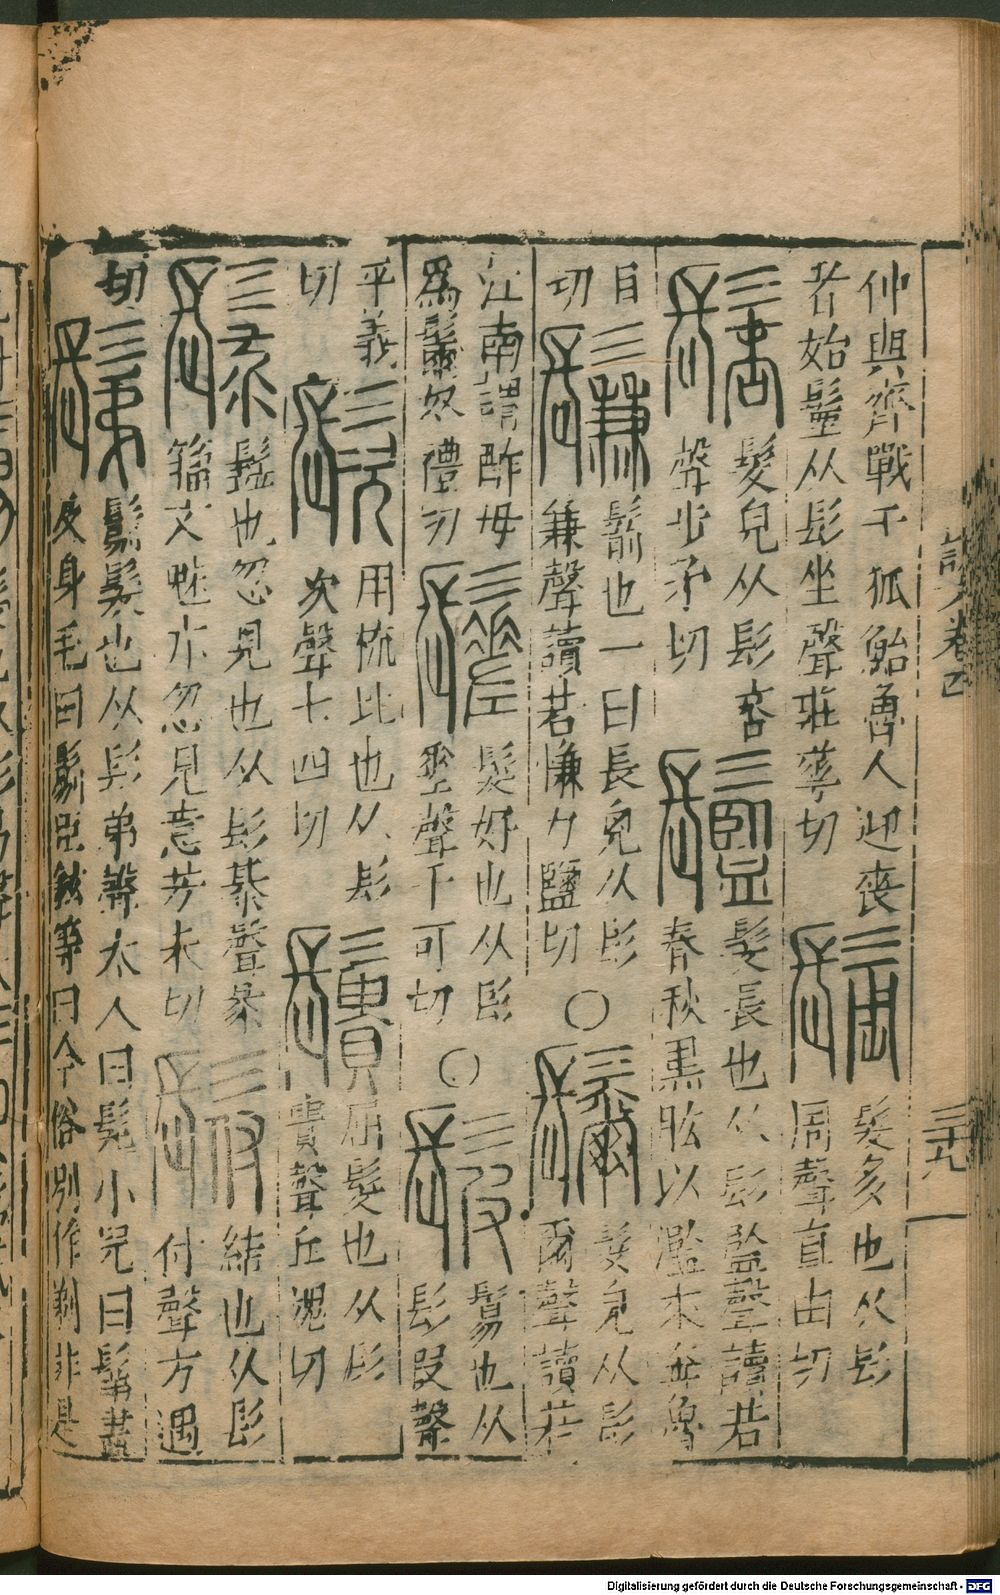 說文卷四
三九
仲與齊戰于狐鮐魯人迎喪
者始髽从髟坐聲莊華切
髮多也从髟
周聲直由切
髮皃从髟咅
聲步矛切
髮長也从髟監聲讀若
春秋黑肱以濫來奔魯
甘
切
鬑
鬋也一曰長皃从髟
兼聲讀若慊力鹽切
○
髮皃从髟
爾聲讀若
江南謂酢母
為 奴禮切
髮好也从髟
聲千可切
○
髲
鬄也从
髟皮聲
平義
切
用梳比也从髟
次聲七四切
屈髮也从髟
貴聲丘媿切
也忽見也从髟 聲
籀文魅亦忽見意芳未切
結也从髟
付聲方遇
切
鬀
鬄髮也从髟弟聲大人曰髡小兒曰 盡
及身毛曰鬄臣鉉等曰今俗別作剃非是
Digitalisierung gefördert durch die Deutsche Forschungsgemeinschaft - DFG